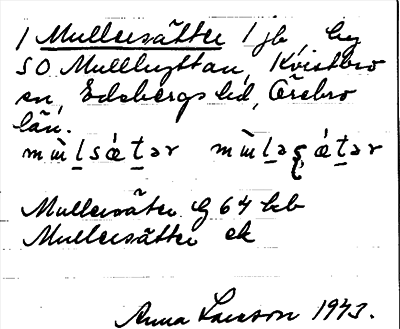 1 Mullersätter 1 jb, by
SO Mullhyttan, Kvistbro
sn, Edsbergs hd, Örebro
län.
Mullersäter G 64 kb
Mullersätter ek
Anna Larsson 1943.